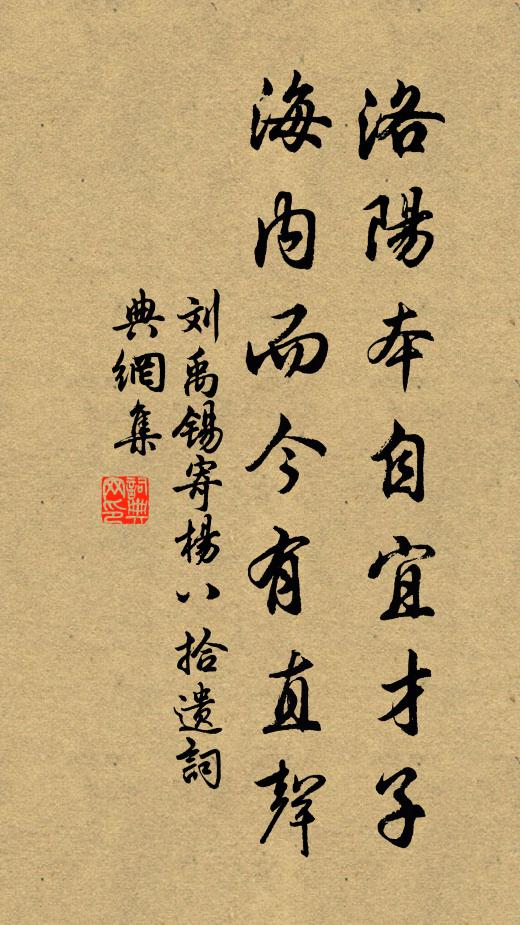 洛陽本自宜才子
海内而今有直聲
刘禹锡寄楊八拾遗詞
典網集
詞典网印